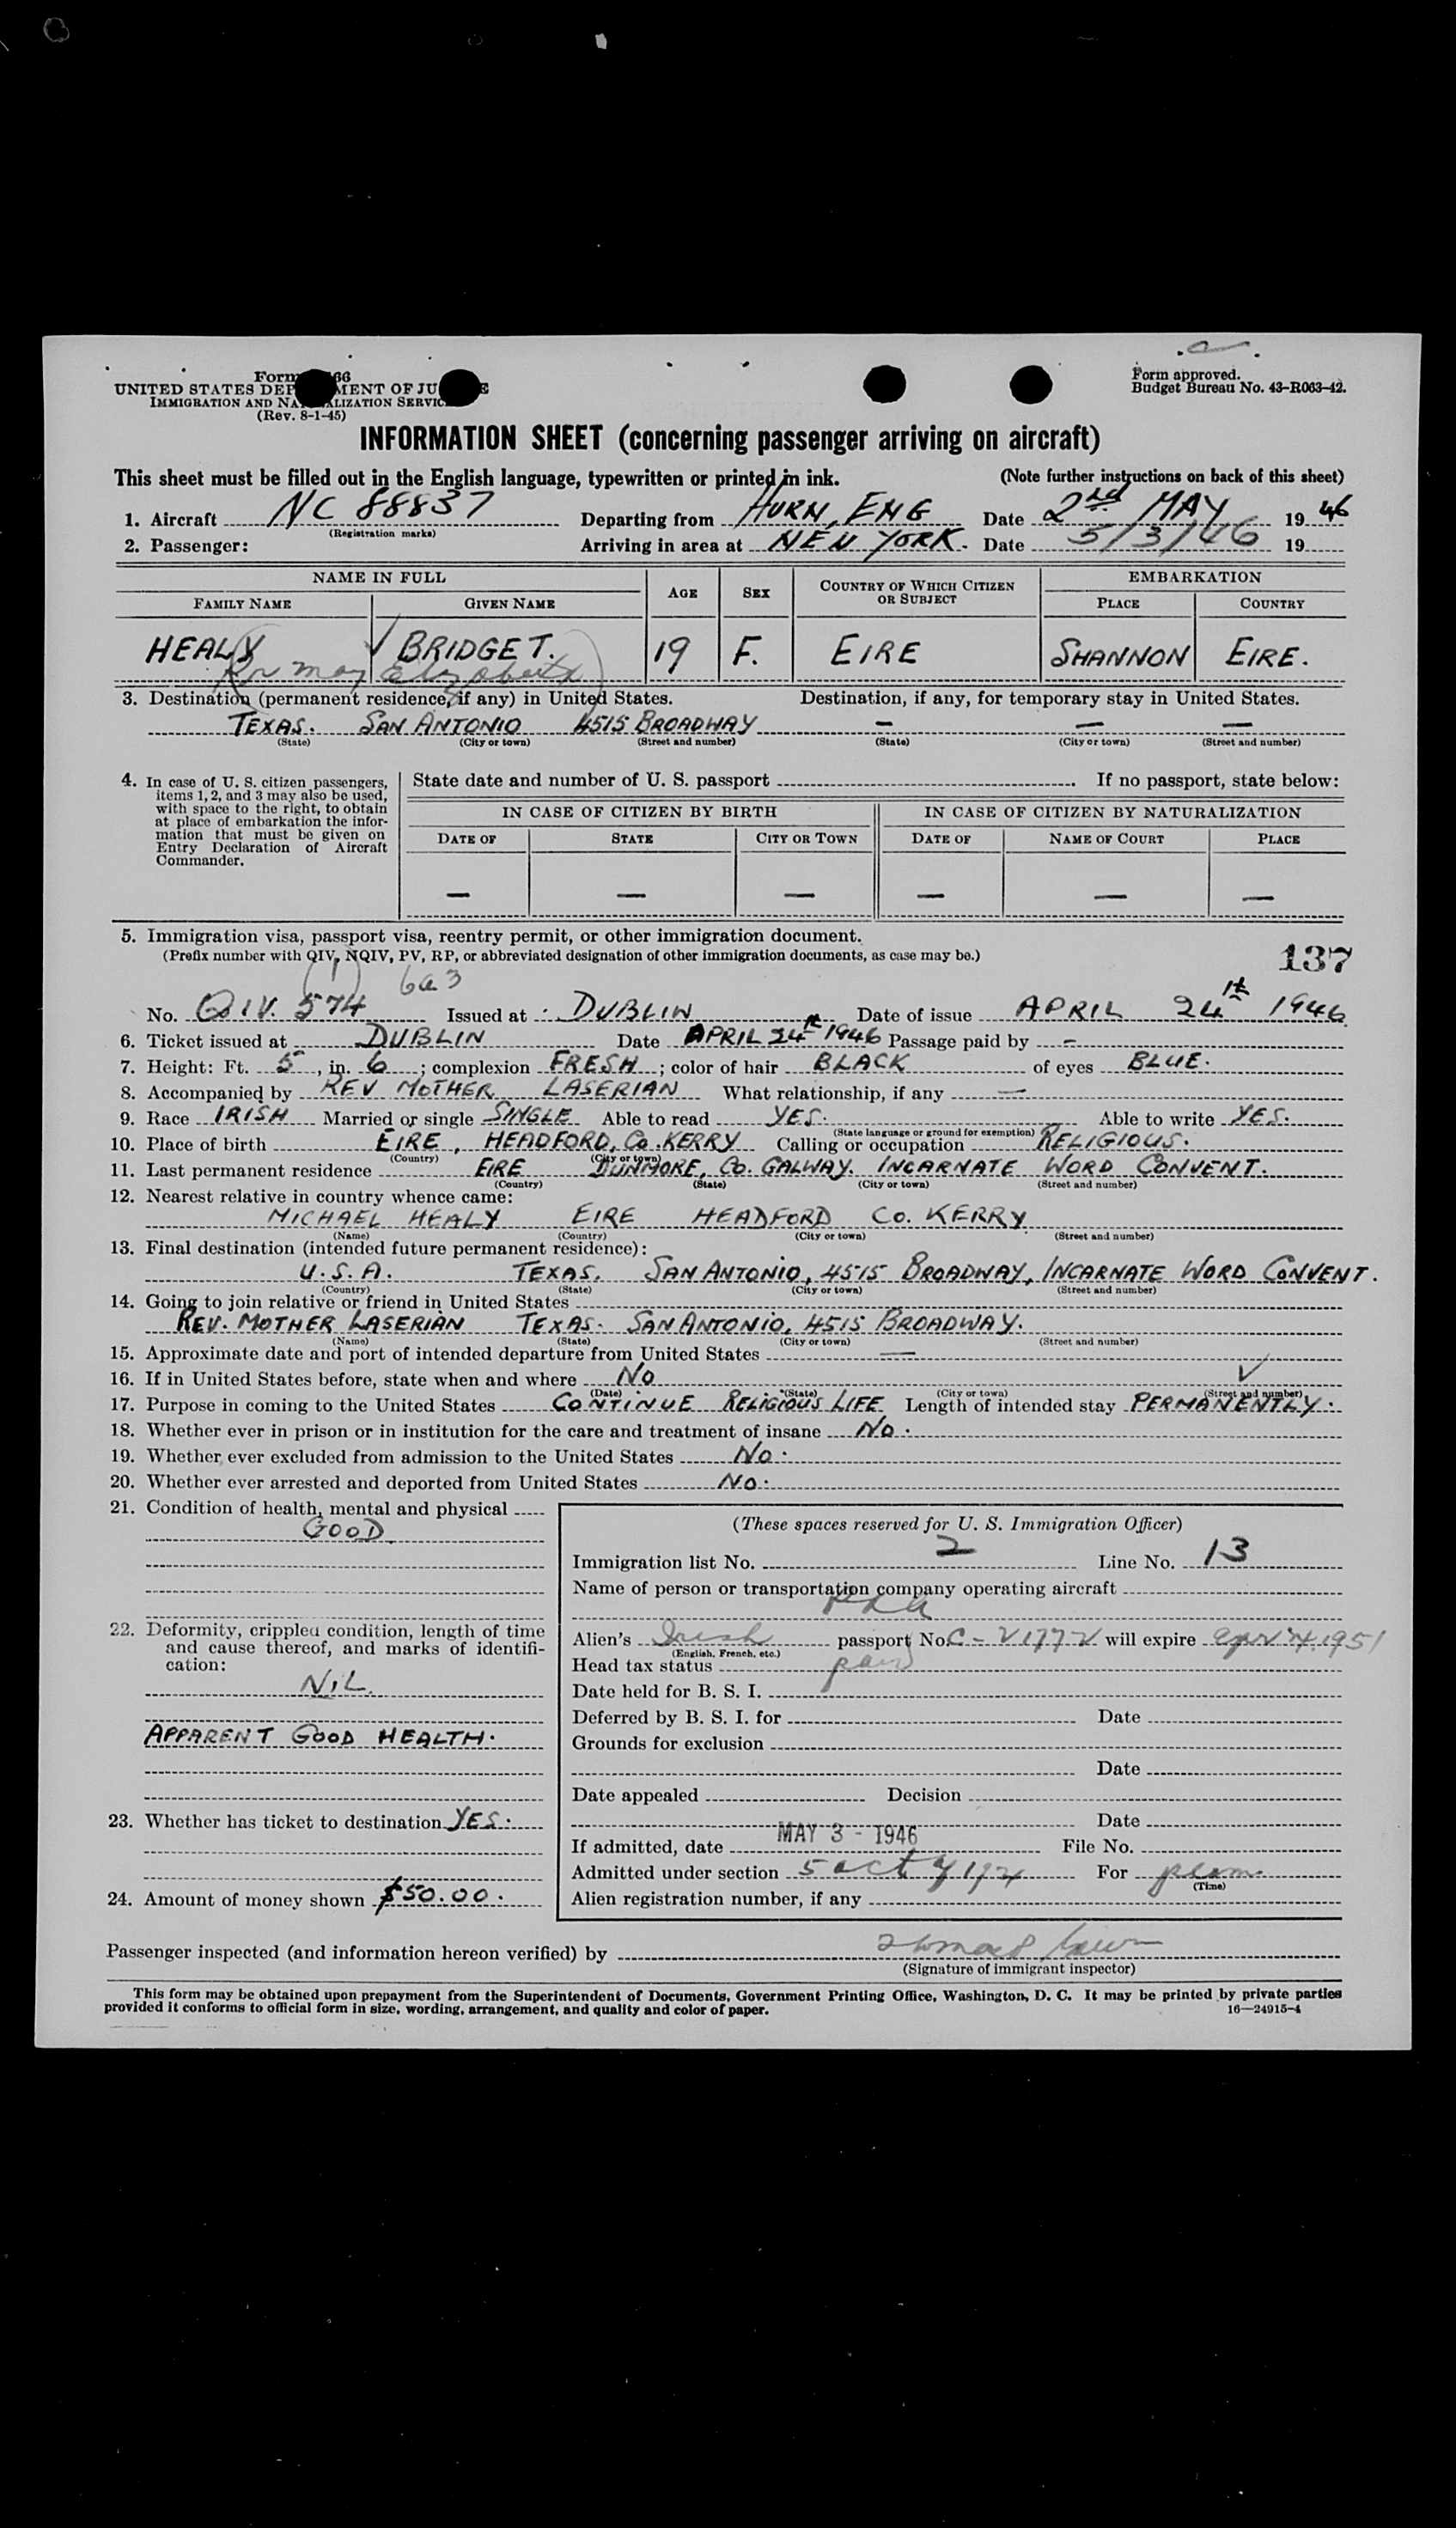 Form 66
UNITED STATES DEP MENT OF JU E
IMMIGRATION AND NA ALIZATION SERVIC
(Rev. 8-1-45)
Form approved.
Budget Bureau No. 43-R063-42.
INFORMATION SHEET (concerning passenger arriving on aircraft)
This sheet must be filled out in the English language, typewritten or printed in ink. (Note further instructions on back of this sheet)
1. Aircraft NC 88837 Departing from HURN, ENG Date 2nd MAY 1946
(Registration marks)
2. Passenger: Arriving in area at NEW YORK. Date 5/3/46 19
NAME IN FULL AGE SEX COUNTRY OF WHICH CITIZEN OR SUBJECT EMBARKATION
FAMILY NAME GIVEN NAME PLACE COUNTRY
HEALY ✓ BRIDGET. 19 F. EIRE SHANNON EIRE.
may Elizabeth
3. Destination (permanent residence, if any) in United States. Destination, if any, for temporary stay in United States.
TEXAS. SAN ANTONIO 4515 BROADWAY — — —
(State) (City or town) (Street and number) (State) (City or town) (Street and number)
4. In case of U. S. citizen passengers, items 1, 2, and 3 may also be used, with space to the right, to obtain at place of embarkation the information that must be given on Entry Declaration of Aircraft Commander.
State date and number of U. S. passport If no passport, state below:
IN CASE OF CITIZEN BY BIRTH IN CASE OF CITIZEN BY NATURALIZATION
DATE OF STATE CITY OR TOWN DATE OF NAME OF COURT PLACE
— — — — — —
5. Immigration visa, passport visa, reentry permit, or other immigration document.
(Prefix number with QIV, NQIV, PV, RP, or abbreviated designation of other immigration documents, as case may be.) 137
(1) 6a3
No. QIV. 574 Issued at DUBLIN Date of issue APRIL 24th 1946
6. Ticket issued at DUBLIN Date APRIL 24th 1946 Passage paid by –
7. Height: Ft. 5, in. 6; complexion FRESH; color of hair BLACK of eyes BLUE.
8. Accompanied by REV MOTHER LASERIAN What relationship, if any —
9. Race IRISH Married or single SINGLE Able to read YES. Able to write YES.
(State language or ground for exemption)
10. Place of birth EIRE, HEADFORD, Co. KERRY Calling or occupation RELIGIOUS.
(Country) (City or town)
11. Last permanent residence EIRE DUNMORE, Co. GALWAY. INCARNATE WORD CONVENT.
(Country) (State) (City or town) (Street and number)
12. Nearest relative in country whence came:
MICHAEL HEALY EIRE HEADFORD Co. KERRY
(Name) (Country) (City or town) (Street and number)
13. Final destination (intended future permanent residence):
U.S.A. TEXAS. SAN ANTONIO, 4515 BROADWAY, INCARNATE WORD CONVENT.
(Country) (State) (City or town) (Street and number)
14. Going to join relative or friend in United States
REV. MOTHER LASERIAN TEXAS. SAN ANTONIO, 4515 BROADWAY.
(Name) (State) (City or town) (Street and number)
15. Approximate date and port of intended departure from United States —
16. If in United States before, state when and where No ✓
(Date) (State) (City or town) (Street and number)
17. Purpose in coming to the United States CONTINUE RELIGIOUS LIFE Length of intended stay PERMANENTLY.
18. Whether ever in prison or in institution for the care and treatment of insane No.
19. Whether ever excluded from admission to the United States No.
20. Whether ever arrested and deported from United States No.
21. Condition of health, mental and physical
GOOD
22. Deformity, crippled condition, length of time and cause thereof, and marks of identification:
NIL.
APPARENT GOOD HEALTH.
23. Whether has ticket to destination YES.
24. Amount of money shown $50.00.
(These spaces reserved for U. S. Immigration Officer)
Immigration list No. 2 Line No. 13
Name of person or transportation company operating aircraft
Alien's Irish passport No. C-21772 will expire 1951
(English, French, etc.)
Head tax status paid
Date held for B. S. I.
Deferred by B. S. I. for Date
Grounds for exclusion
Date
Date appealed Decision
Date
If admitted, date MAY 3 - 1946 File No.
Admitted under section 5 act of 1924 For perm.
(Time)
Alien registration number, if any
Passenger inspected (and information hereon verified) by
(Signature of immigrant inspector)
This form may be obtained upon prepayment from the Superintendent of Documents, Government Printing Office, Washington, D. C. It may be printed by private parties
provided it conforms to official form in size, wording, arrangement, and quality and color of paper. 16—24915-4